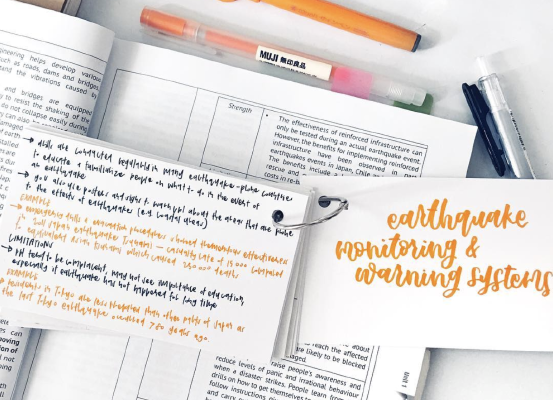 gineering helps develop various
such as roads, dams and bridges
tand the vibrations caused by
and bridges are equipped
to resist the shaking of the
do not collapse easily during
can also be
damaged
MUJI 無印良品
Strength
• The effectiveness of reinforced infrastructure can
only be tested during an actual earthquake event.
However, the benefits for implementing reinforced
infrastructure have been observed in
earthquakes events in Japan, Chile
rescue and
costs in
→ drills are conducted regularly in many earthquake-prone countries
to educate & familiarize people on what to do in the event of
an earthquake
→ gov also use posters and signs to warn ppl about the areas that are prone
to the effects of earthquake (e.g. coastal areas)
EXAMPLE
→ emergency drills & evacuation procedures showed tremendous effectiveness
in 2011 Japan earthquake tsunami – casualty rate of 15 000 compared
to equivalent Asian tsunami which caused 230 000 death.
LIMITATIONS
→ ppl tend to be complacent, may not see importance of education,
especially if earthquake has not happened for long time
EXAMPLE
→ residents in Tokyo are less prepared than other parts of Japan as
the last Tokyo earthquake occurred >80 years ago.
earthquake
monitoring &
warning systems
reach the affected
are likely to be blocked
raise people's awareness and
reduce levels of panic and irrational behaviour
when a disaster strikes. People learn from
drills on how to get themselves to
follow instructions
and carry
Unit 1